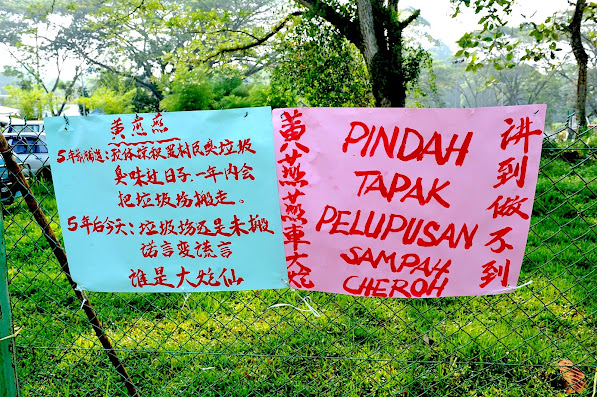 黄燕燕
5年前補选:我体谅村民與垃圾
臭味过日子.一年内会
把垃圾场搬走.
5年后今天:垃圾场还是未搬
诺言变谎言
谁是大炮仙
黄燕燕車大炮
PINDAH
TAPAK
PELUPUSAN
SAMPAH
CHEROH
讲到做不到